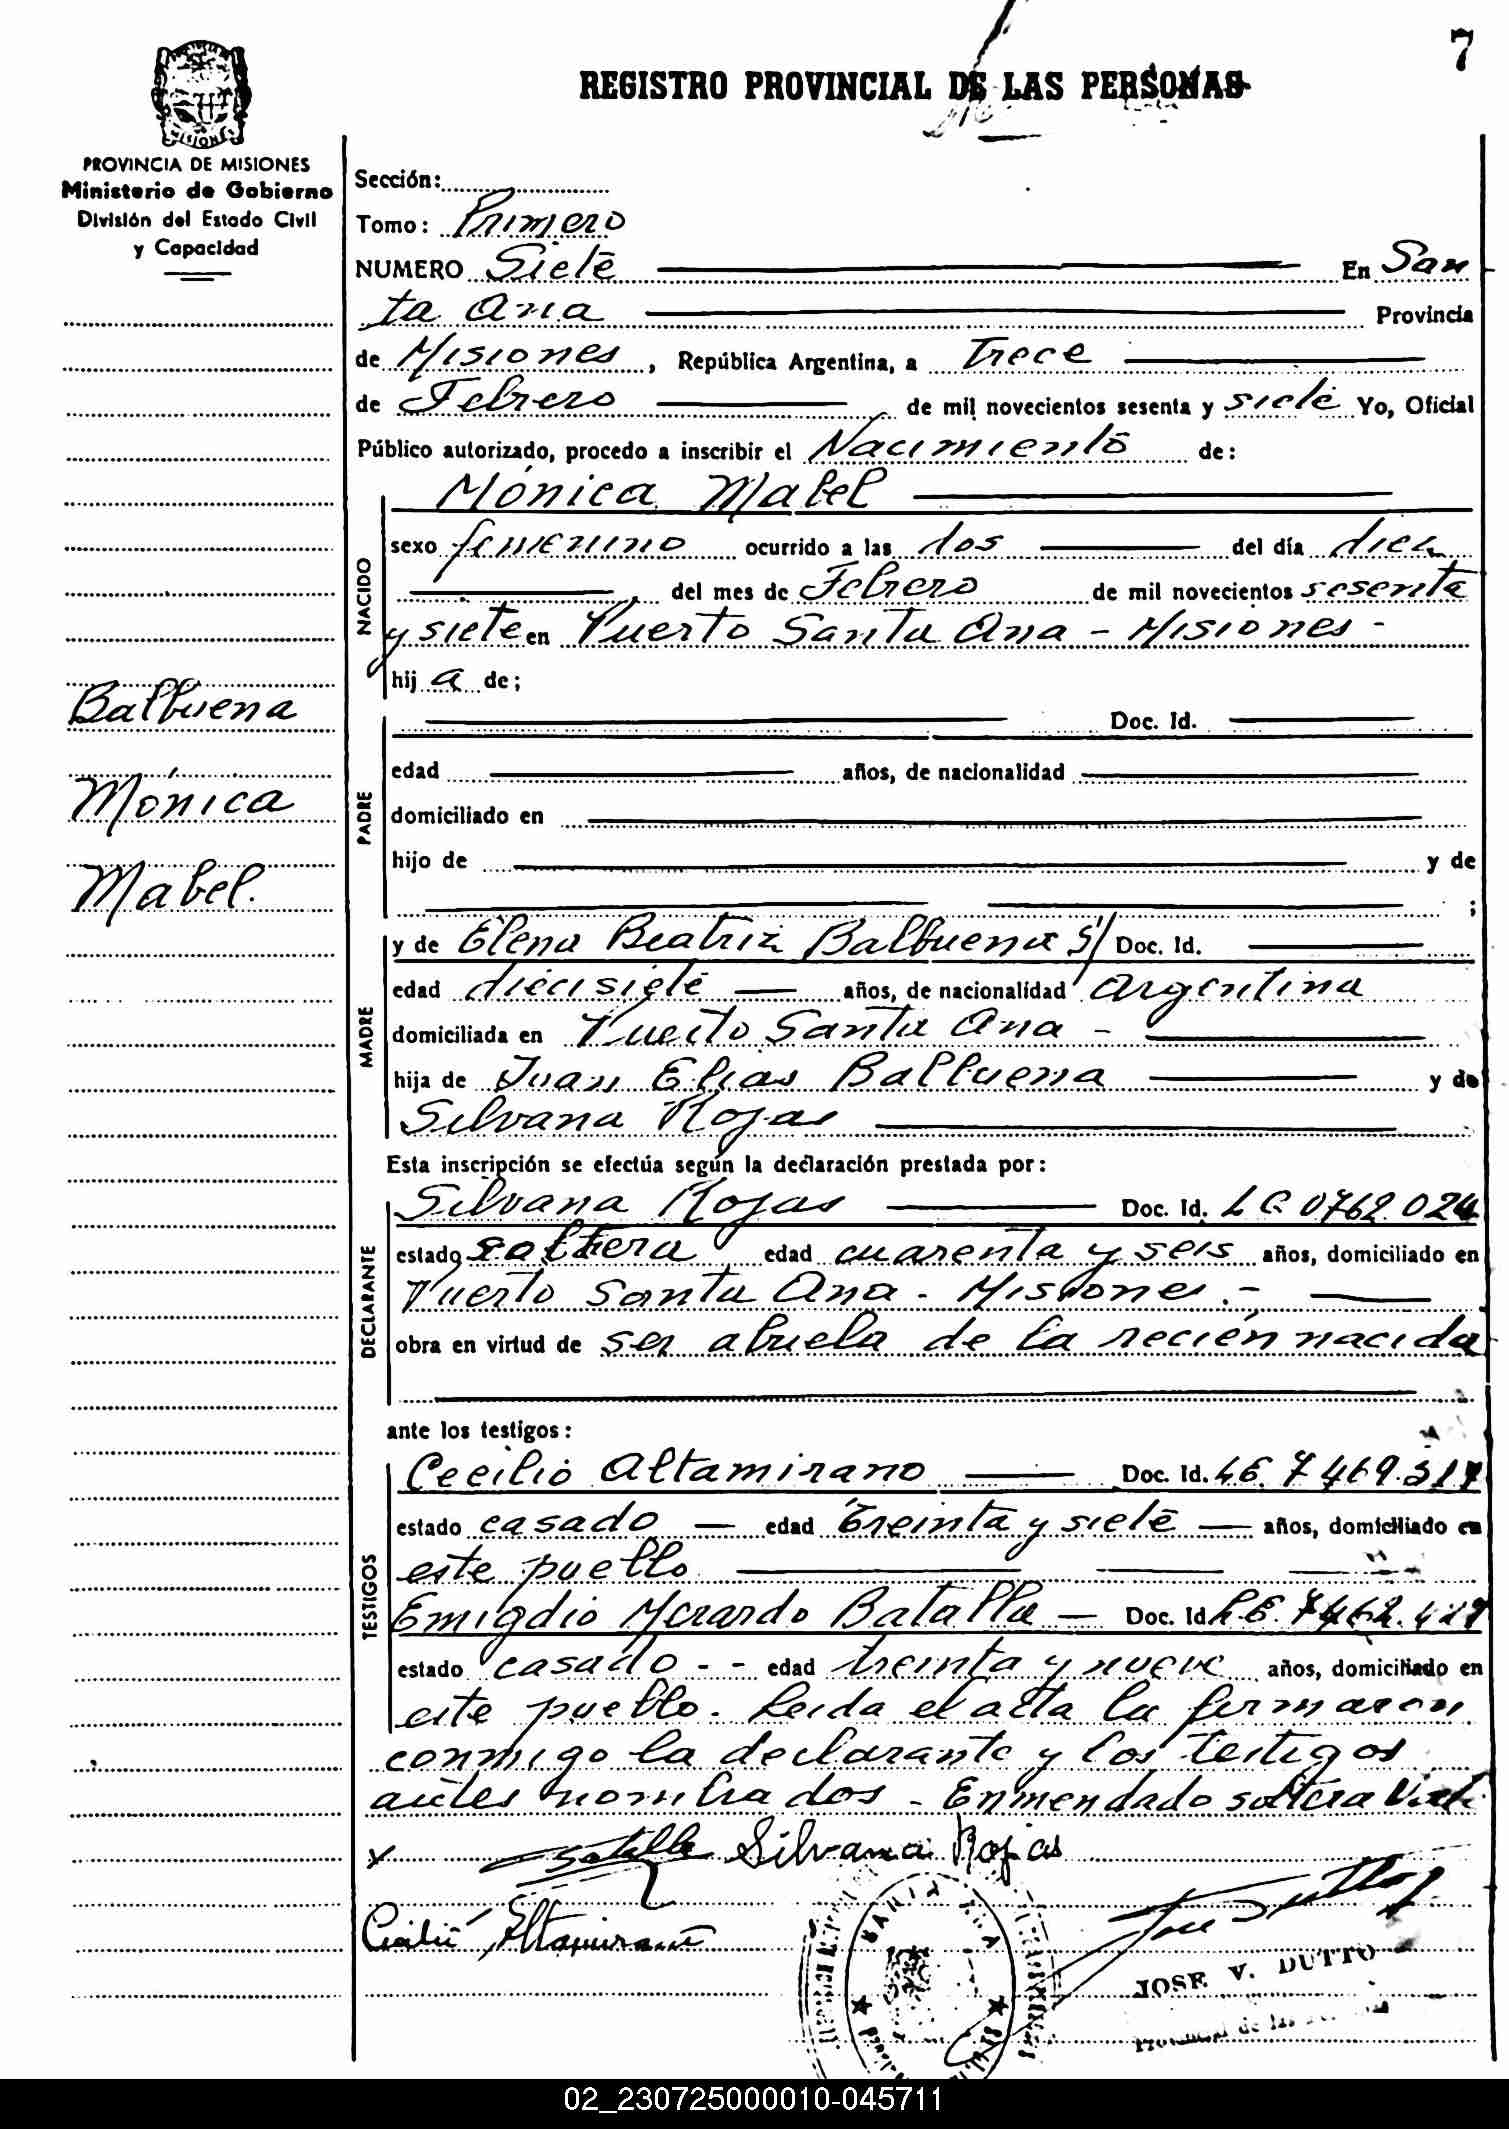 7
REGISTRO PROVINCIAL DE LAS PERSONAS
PROVINCIA DE MISIONES
Ministerio de Gobierno
División del Estado Civil
y Capacidad
Balbuena
Mónica
Mabel.
Sección:
Tomo: Primero
NUMERO Siete En San
ta Ana Provincia
de Misiones, República Argentina, a Trece
de Febrero de mil novecientos sesenta y siete Yo, Oficial
Público autorizado, procedo a inscribir el Nacimiento de:
NACIDO
Mónica Mabel
sexo femenino ocurrido a las dos del día diez
del mes de Febrero de mil novecientos sesenta
y siete en Puerto Santa Ana - Misiones -
hij a de;
PADRE
Doc. Id.
edad años, de nacionalidad
domiciliado en
hijo de y de
;
MADRE
y de Elena Beatriz Balbuena S/ Doc. Id.
edad diecisiete años, de nacionalidad Argentina
domiciliada en Puerto Santa Ana -
hija de Juan Elias Balbuena y de
Silvana Rojas
Esta inscripción se efectúa según la declaración prestada por:
DECLARANTE
Silvana Rojas Doc. Id. L C 0762 024
estado soltera edad cuarenta y seis años, domiciliado en
Puerto Santa Ana - Misiones.-
obra en virtud de ser abuela de la recién nacida
ante los testigos:
TESTIGOS
Cecilio Altamirano Doc. Id. L.E. 7469.
estado casado - edad Treinta y siete - años, domiciliado en
este pueblo
Emigdio Batalla - Doc. Id. L.E.
estado casado - - edad treinta y nueve años, domiciliado en
este pueblo. Leida el acta la firmaron
conmigo la declarante y los testigos
antes nombrados - Enmendado soltera Vale
x Batalla Silvana Rojas
Cecilio Altamirano
SANTA ANA
JOSE V. DUTTO
Provincial de las
02_230725000010-045711